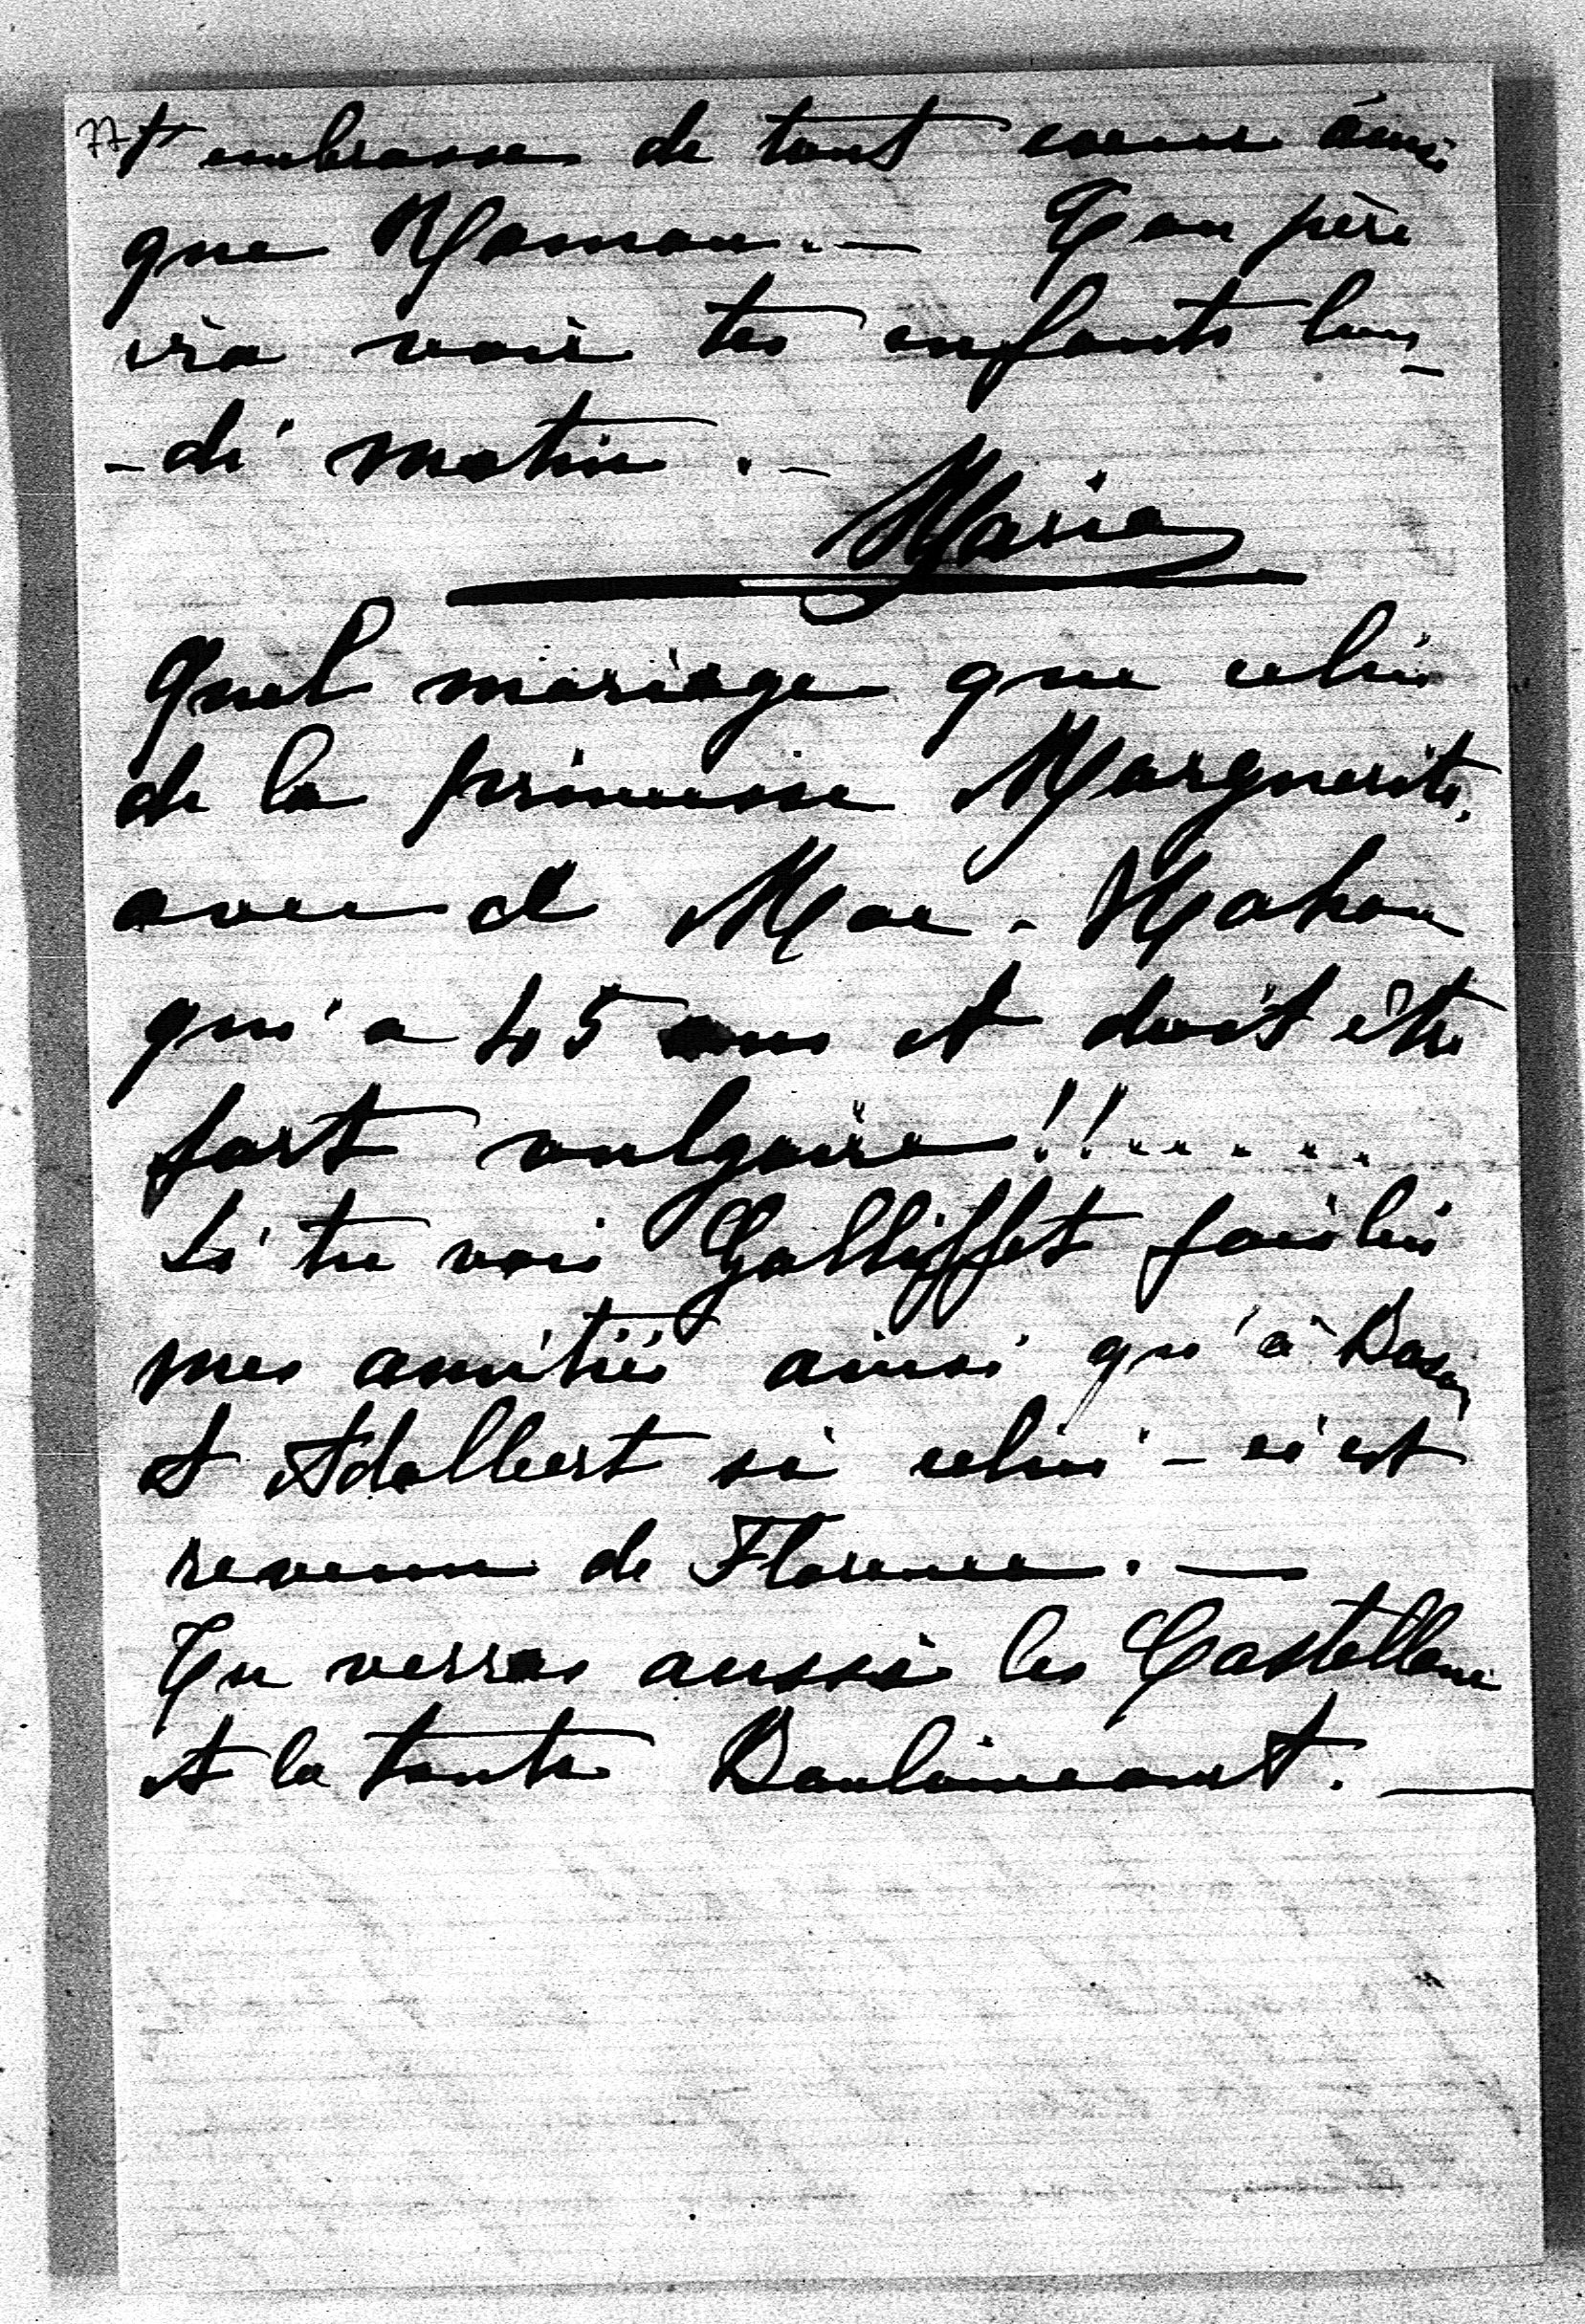 77 t'embrasse de tout coeur ainsi
que Maman. — Ton père
ira voir tes enfants lun-
-di matin. —
Marie
Quel mariage que celui
de la princesse Marguerite
avec cl Mac-Mahon
qui a 45 ans et doit être
fort vulgaire!!.....
Si tu vois Galliffet fais lui
mes amitiés ainsi qu'à
et Adalbert si celui-ci est
revenu de Florence. —
Tu verras aussi les Castellane
et la tante —